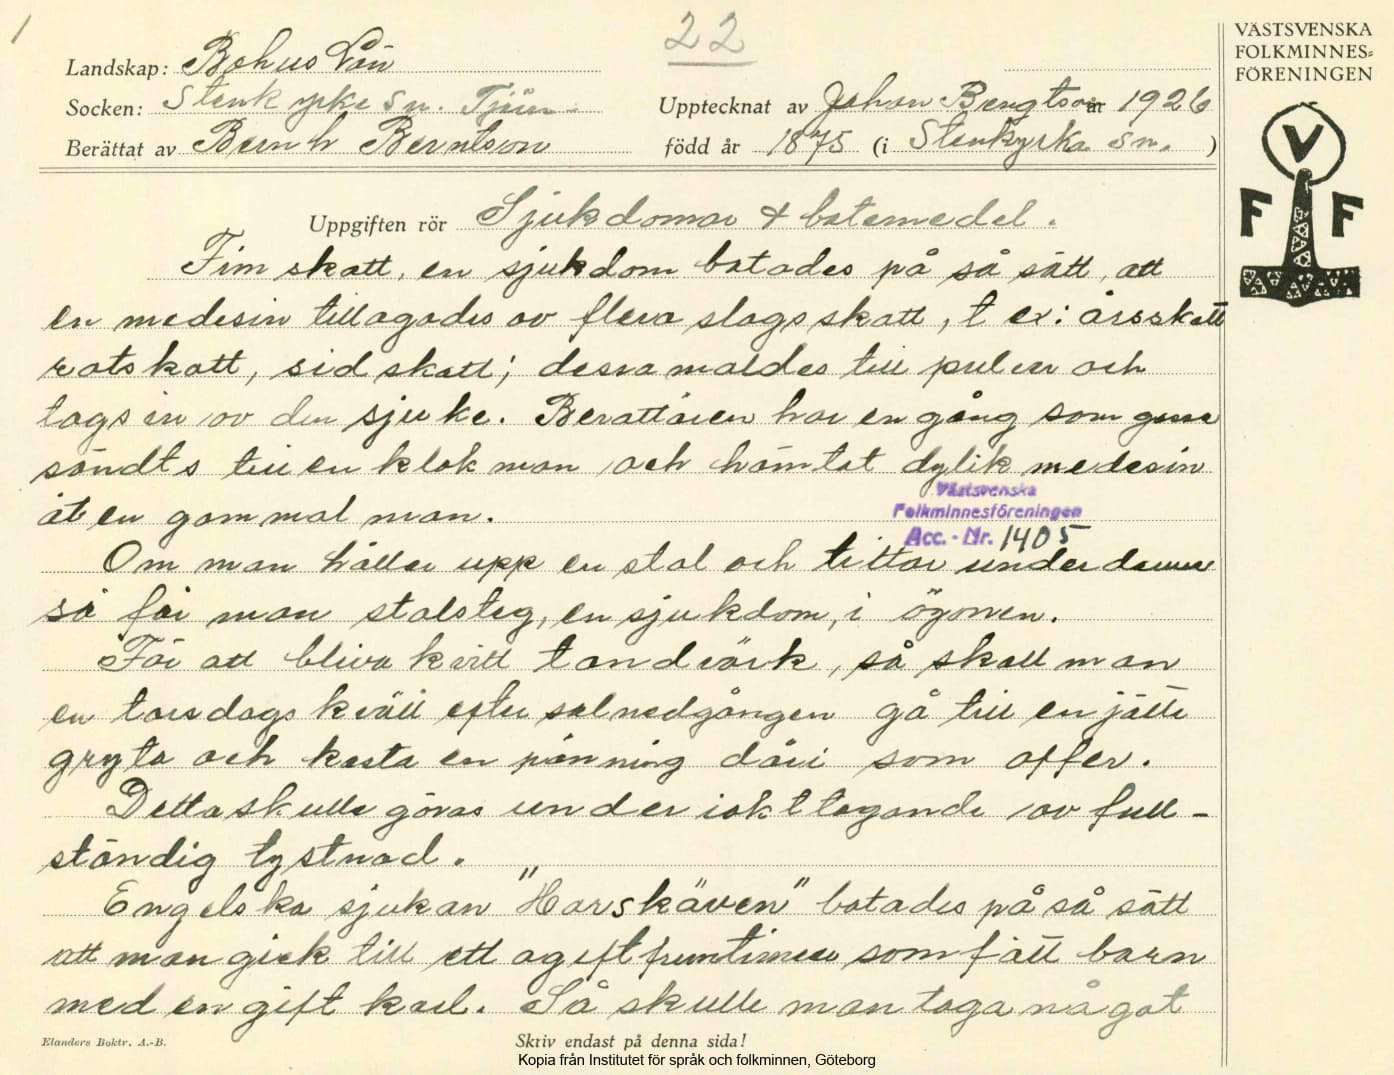 1
22
VÄSTSVENSKA
FOLKMINNES=
FÖRENINGEN
V
F F
Landskap: Bohus Län
Socken: Stenkyrka sn. Tjörn.
Upptecknat av Johan Bengtson år 1926
Berättat av Bernh Berntson
född år 1875 (i Stenkyrka sn. )
Uppgiften rör Sjukdomar & botemedel.
Fimskatt, en sjukdom botades på så sätt, att
en medesin tillagades av flera slags skatt, t ex: årsskatt
rotskatt, sidskatt; dessa maldes till pulver och
togs in av den sjuke. Berättaren har en gång som gosse
sändts till en klok man och hämtat dylik medesin
åt en gammal man.
Västsvenska
Folkminnesföreningen
Acc. - Nr. 1405
Om man håller upp en stol och tittar under denne
så får man stolsteg, en sjukdom, i ögonen.
För att bliva kvitt tandvärk, så skall man
en torsdags kväll efter solnedgången gå till en jätte
gryta och kasta en pänning däri som offer.
Detta skulle göras under iakttagande av full-
ständig tystnad.
Engelska sjukan "Horskäven" botades på så sätt
att man gick till ett ogift fruntimer som fått barn
med en gift karl. Så skulle man taga något
Elanders Boktr. A.-B.
Skriv endast på denna sida!
Kopia från Institutet för språk och folkminnen, Göteborg